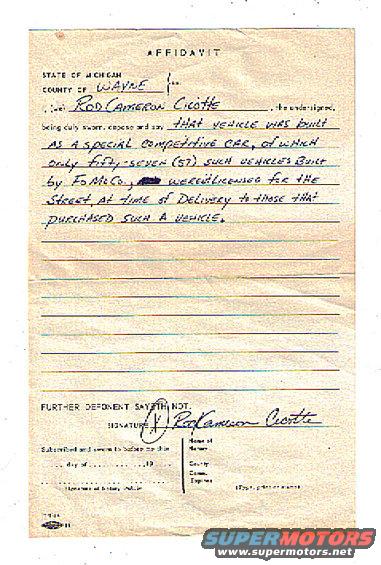 AFFIDAVIT
STATE OF MICHIGAN
COUNTY OF WAYNE } ss.
I, (we) Rod Cameron Cicotte, the undersigned,
being duly sworn, depose and say THAT VEHICLE WAS BUILT
AS A SPECIAL COMPETITIVE CAR, OF WHICH
ONLY FIFTY-SEVEN (57) SUCH VEHICLES BUILT
by FoMoCo, WEREN'T LICENSED FOR THE
STREET, AT TIME OF DELIVERY TO THOSE THAT
PURCHASED SUCH A VEHICLE.
FURTHER DEPONENT SAYETH NOT.
SIGNATURE (X) Rod Cameron Cicotte
Subscribed and sworn to before me this
Name of
Notary
day of 19
County
Comm.
Expires
Signature of Notary Public
(Type, print or stamp)
SUPERMOTORS
www.supermotors.net